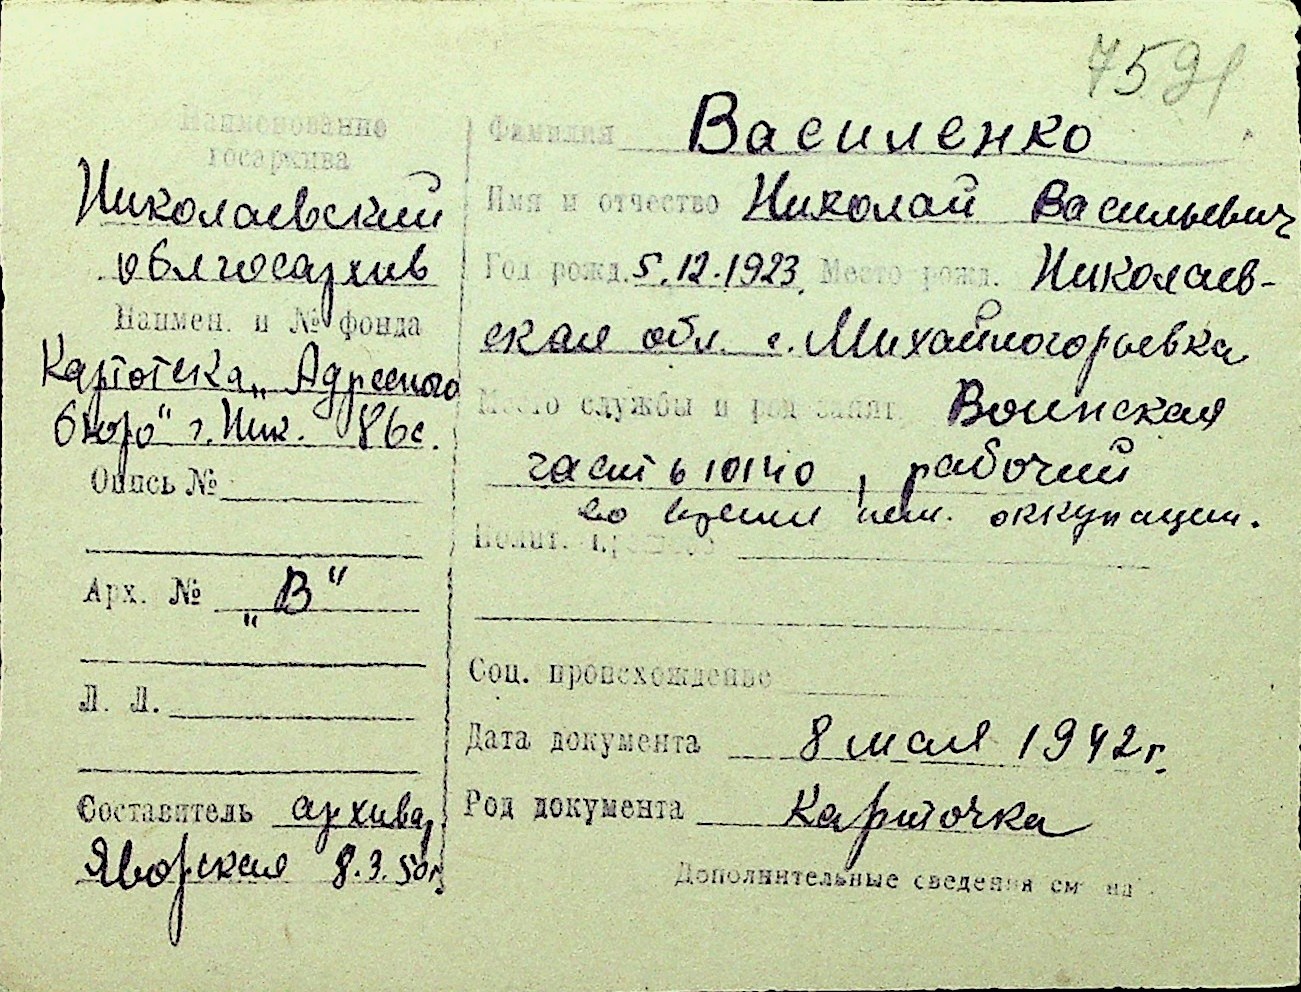 7591
Наименование
госархива
Николаевский
облгосархив
Наимен. и № фонда
Картотека „Адресного
бюро" г. Ник. 86с.
Опись №
Арх. № „В"
Л. Л.
Составитель архивар
Яворская 8.3.50г.
Фамилия Василенко
Имя и отчество Николай Васильевич
Год рожд. 5.12.1923. Место рожд. Николаев-
ская обл. с. Михайлогорьевка
Место службы и род занят. Воинская
часть 10140, рабочий
во время нем. оккупации.
Полит.
Соц. происхождение
Дата документа 8 мая 1942г.
Род документа Карточка
Дополнительные сведения см на